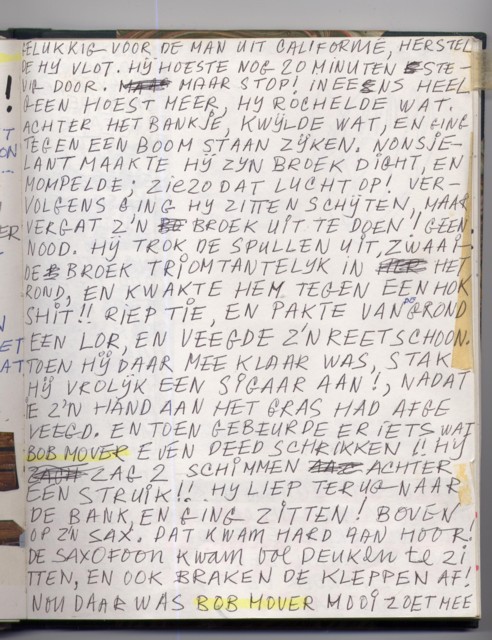 GELUKKIG VOOR DE MAN UIT CALIFORNIË, HERSTEL
DE HY VLOT. HY HOESTE NOG 20 MINUTEN STE-
VIG DOOR. MAAR STOP! INEENS HEEL
GEEN HOEST MEER, HY ROCHELDE WAT.
ACHTER HET BANKJE, KWYLDE WAT, EN GING
TEGEN EEN BOOM STAAN ZYKEN. NONSJE-
LANT MAAKTE HY ZYN BROEK DICHT, EN
MOMPELDE; ZIEZO DAT LUCHT OP! VER-
VOLGENS GING HY ZITTEN SCHYTEN, MAAR
VERGAT Z'N BROEK UIT TE DOEN, GEEN
NOOD. HY TROK DE SPULLEN UIT, ZWAAI-
DE BROEK TRIOMTANTELYK IN HET
ROND, EN KWAKTE HEM TEGEN EEN HOK
SHIT!! RIEP TIE, EN PAKTE VAN DE GROND
EEN LOR, EN VEEGDE Z'N REET SCHOON.
TOEN HY DAAR MEE KLAAR WAS, STAK
HY VROLYK EEN SIGAAR AAN!, NADAT
IE Z'N HAND AAN HET GRAS HAD AFGE
VEEGD. EN TOEN GEBEURDE ER IETS WAT
BOB MOVER EVEN DEED SCHRIKKEN!! HY
ZAG 2 SCHIMMEN ACHTER
EEN STRUIK!! HY LIEP TERUG NAAR
DE BANK, EN GING ZITTEN! BOVEN
OP Z'N SAX. DAT KWAM HARD AAN HOOR!
DE SAXOFOON KWAM VOL DEUKEN TE ZI
TTEN, EN OOK BRAKEN DE KLEPPEN AF!
NOU DAAR WAS BOB MOVER MOOI ZOET MEE